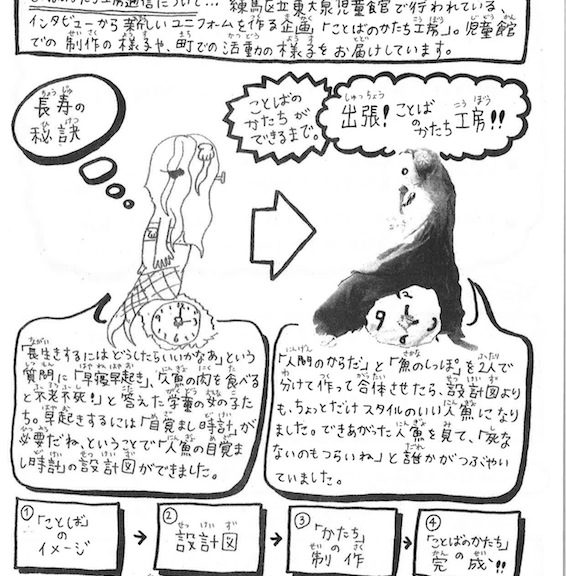 工房通信について… 練馬区立東大泉児童館で行われている、
インタビューから新しいユニフォームを作る企画、「ことばのかたち工房」。児童館
での制作の様子や、町での活動の様子をお届けしています。
長寿の
秘訣
ことばの
かたちが
できるまで。
出張!ことば
のかたち工房!!
「長生きするにはどうしたらいいかなあ」という
質問に「早寝早起き」、「人魚の肉を食べる
と不老不死!」と答えた学童の女の子た
ち。早起きするには「目覚まし時計」が
必要だね、ということで「人魚の目覚ま
し時計」の設計図ができました。
「人間のからだ」と「魚のしっぽ」を2人で
分けて作って合体させたら、設計図より
も、ちょっとだけスタイルのいい人魚になり
ました。できあがった人魚を見て、「死な
ないのもつらいね」と誰かがつぶやい
ていました。
①「ことば」
の
イメージ
②
設計図
③「かたち」
の
制作
④
「ことばのかたち」
の
完成!!